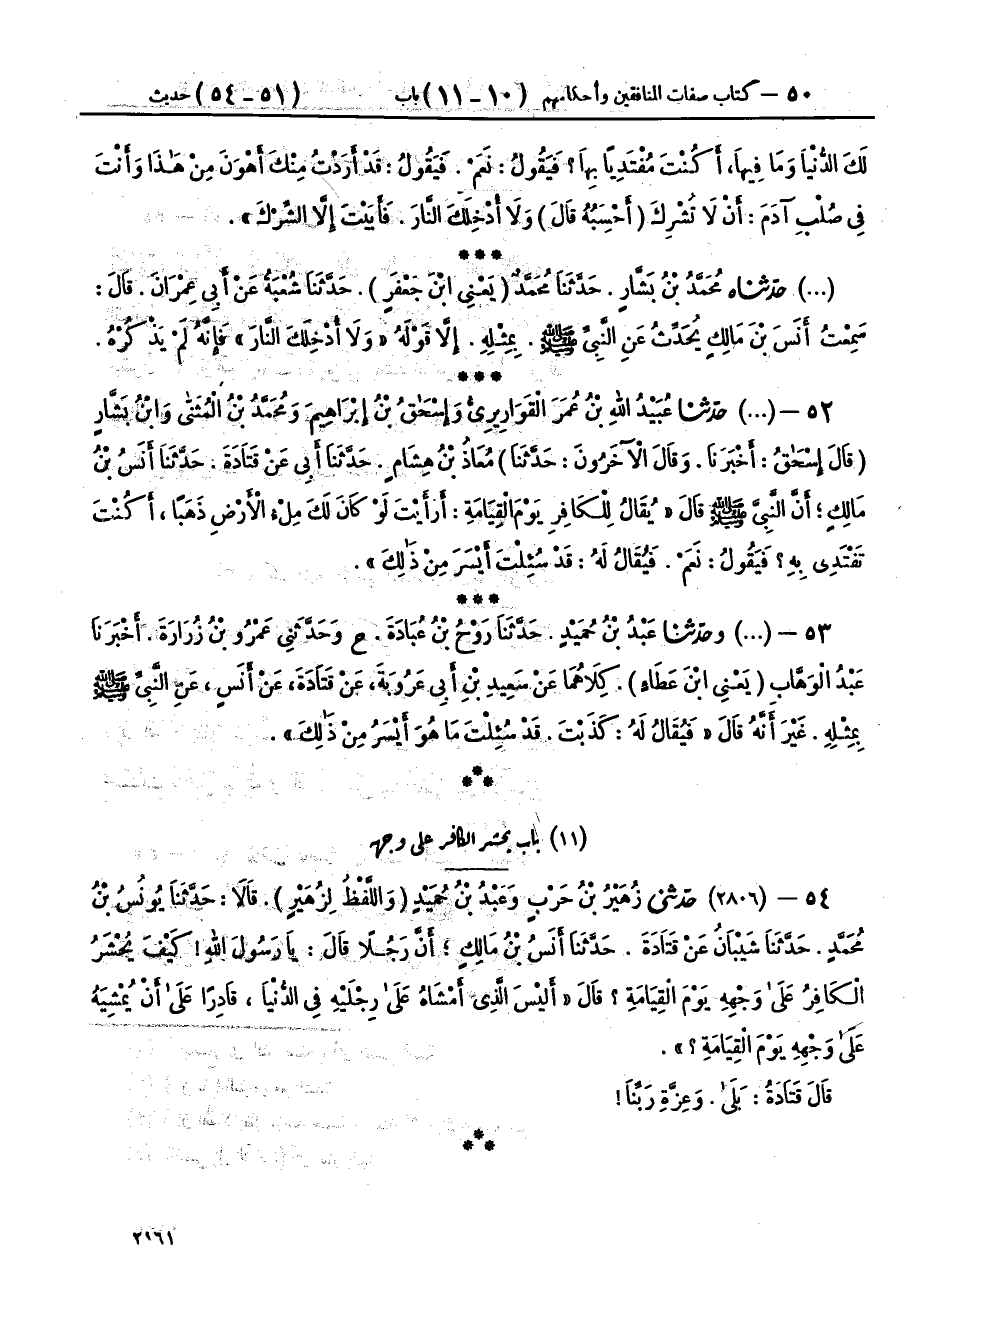 ٥٠ — كتاب صفات المنافقين وأحكامهم (١٠ - ١١) باب (٥١ - ٥٤) حديث
لَكَ الدُّنْيَا وَمَا فِيهَا، أَكُنْتَ مُفْتَدِيًا بِهَا؟ فَيَقُولُ: نَعَمْ. فَيَقُولُ: قَدْ أَرَدْتُ مِنْكَ أَهْوَنَ مِنْ هَٰذَا وَأَنْتَ
فِي صُلْبِ آدَمَ: أَنْ لَا تُشْرِكَ (أَحْسِبُهُ قَالَ) وَلَا أُدْخِلَكَ النَّارَ. فَأَبَيْتَ إِلَّا الشِّرْكَ».
***
(...) حَدَّثَنَاه مُحَمَّدُ بْنُ بَشَّارٍ. حَدَّثَنَا مُحَمَّدٌ (يَعْنِي ابْنَ جَعْفَرٍ). حَدَّثَنَا شُعْبَةُ عَنْ أَبِي عِمْرَانَ. قَالَ:
سَمِعْتُ أَنَسَ بْنَ مَالِكٍ يُحَدِّثُ عَنِ النَّبِيِّ ﷺ. بِمِثْلِهِ. إِلَّا قَوْلَهُ «وَلَا أُدْخِلَكَ النَّارَ» فَإِنَّهُ لَمْ يَذْكُرْهُ.
***
٥٢ — (...) حَدَّثَنَا عُبَيْدُ اللهِ بْنُ عُمَرَ الْقَوَارِيرِيُّ وَإِسْحَٰقُ بْنُ إِبْرَاهِيمَ وَمُحَمَّدُ بْنُ الْمُثَنَّىٰ وَابْنُ بَشَّارٍ
(قَالَ إِسْحَٰقُ: أَخْبَرَنَا. وَقَالَ الْآخَرُونَ: حَدَّثَنَا) مُعَاذُ بْنُ هِشَامٍ. حَدَّثَنَا أَبِي عَنْ قَتَادَةَ. حَدَّثَنَا أَنَسُ بْنُ
مَالِكٍ؛ أَنَّ النَّبِيَّ ﷺ قَالَ «يُقَالُ لِلْكَافِرِ يَوْمَ الْقِيَامَةِ: أَرَأَيْتَ لَوْ كَانَ لَكَ مِلْءُ الْأَرْضِ ذَهَبًا، أَكُنْتَ
تَفْتَدِي بِهِ؟ فَيَقُولُ: نَعَمْ. فَيُقَالُ لَهُ: قَدْ سُئِلْتَ أَيْسَرَ مِنْ ذَٰلِكَ».
***
٥٣ — (...) وحَدَّثَنَا عَبْدُ بْنُ حُمَيْدٍ. حَدَّثَنَا رَوْحُ بْنُ عُبَادَةَ. ح وَحَدَّثَنِي عَمْرُو بْنُ زُرَارَةَ. أَخْبَرَنَا
عَبْدُ الْوَهَّابِ (يَعْنِي ابْنَ عَطَاءٍ). كِلَاهُمَا عَنْ سَعِيدِ بْنِ أَبِي عَرُوبَةَ، عَنْ قَتَادَةَ، عَنْ أَنَسٍ، عَنِ النَّبِيِّ ﷺ
بِمِثْلِهِ. غَيْرَ أَنَّهُ قَالَ «فَيُقَالُ لَهُ: كَذَبْتَ. قَدْ سُئِلْتَ مَا هُوَ أَيْسَرُ مِنْ ذَٰلِكَ».
***
(١١) باب يحشر الكافر على وجهه
٥٤ — (٢٨٠٦) حَدَّثَنِي زُهَيْرُ بْنُ حَرْبٍ وَعَبْدُ بْنُ حُمَيْدٍ (وَاللَّفْظُ لِزُهَيْرٍ). قَالَا: حَدَّثَنَا يُونُسُ بْنُ
مُحَمَّدٍ. حَدَّثَنَا شَيْبَانُ عَنْ قَتَادَةَ. حَدَّثَنَا أَنَسُ بْنُ مَالِكٍ؛ أَنَّ رَجُلًا قَالَ: يَا رَسُولَ اللهِ! كَيْفَ يُحْشَرُ
الْكَافِرُ عَلَىٰ وَجْهِهِ يَوْمَ الْقِيَامَةِ؟ قَالَ «أَلَيْسَ الَّذِي أَمْشَاهُ عَلَىٰ رِجْلَيْهِ فِي الدُّنْيَا، قَادِرًا عَلَىٰ أَنْ يُمْشِيَهُ
عَلَىٰ وَجْهِهِ يَوْمَ الْقِيَامَةِ؟».
قَالَ قَتَادَةُ: بَلَىٰ. وَعِزَّةِ رَبِّنَا!
***
٢١٦١